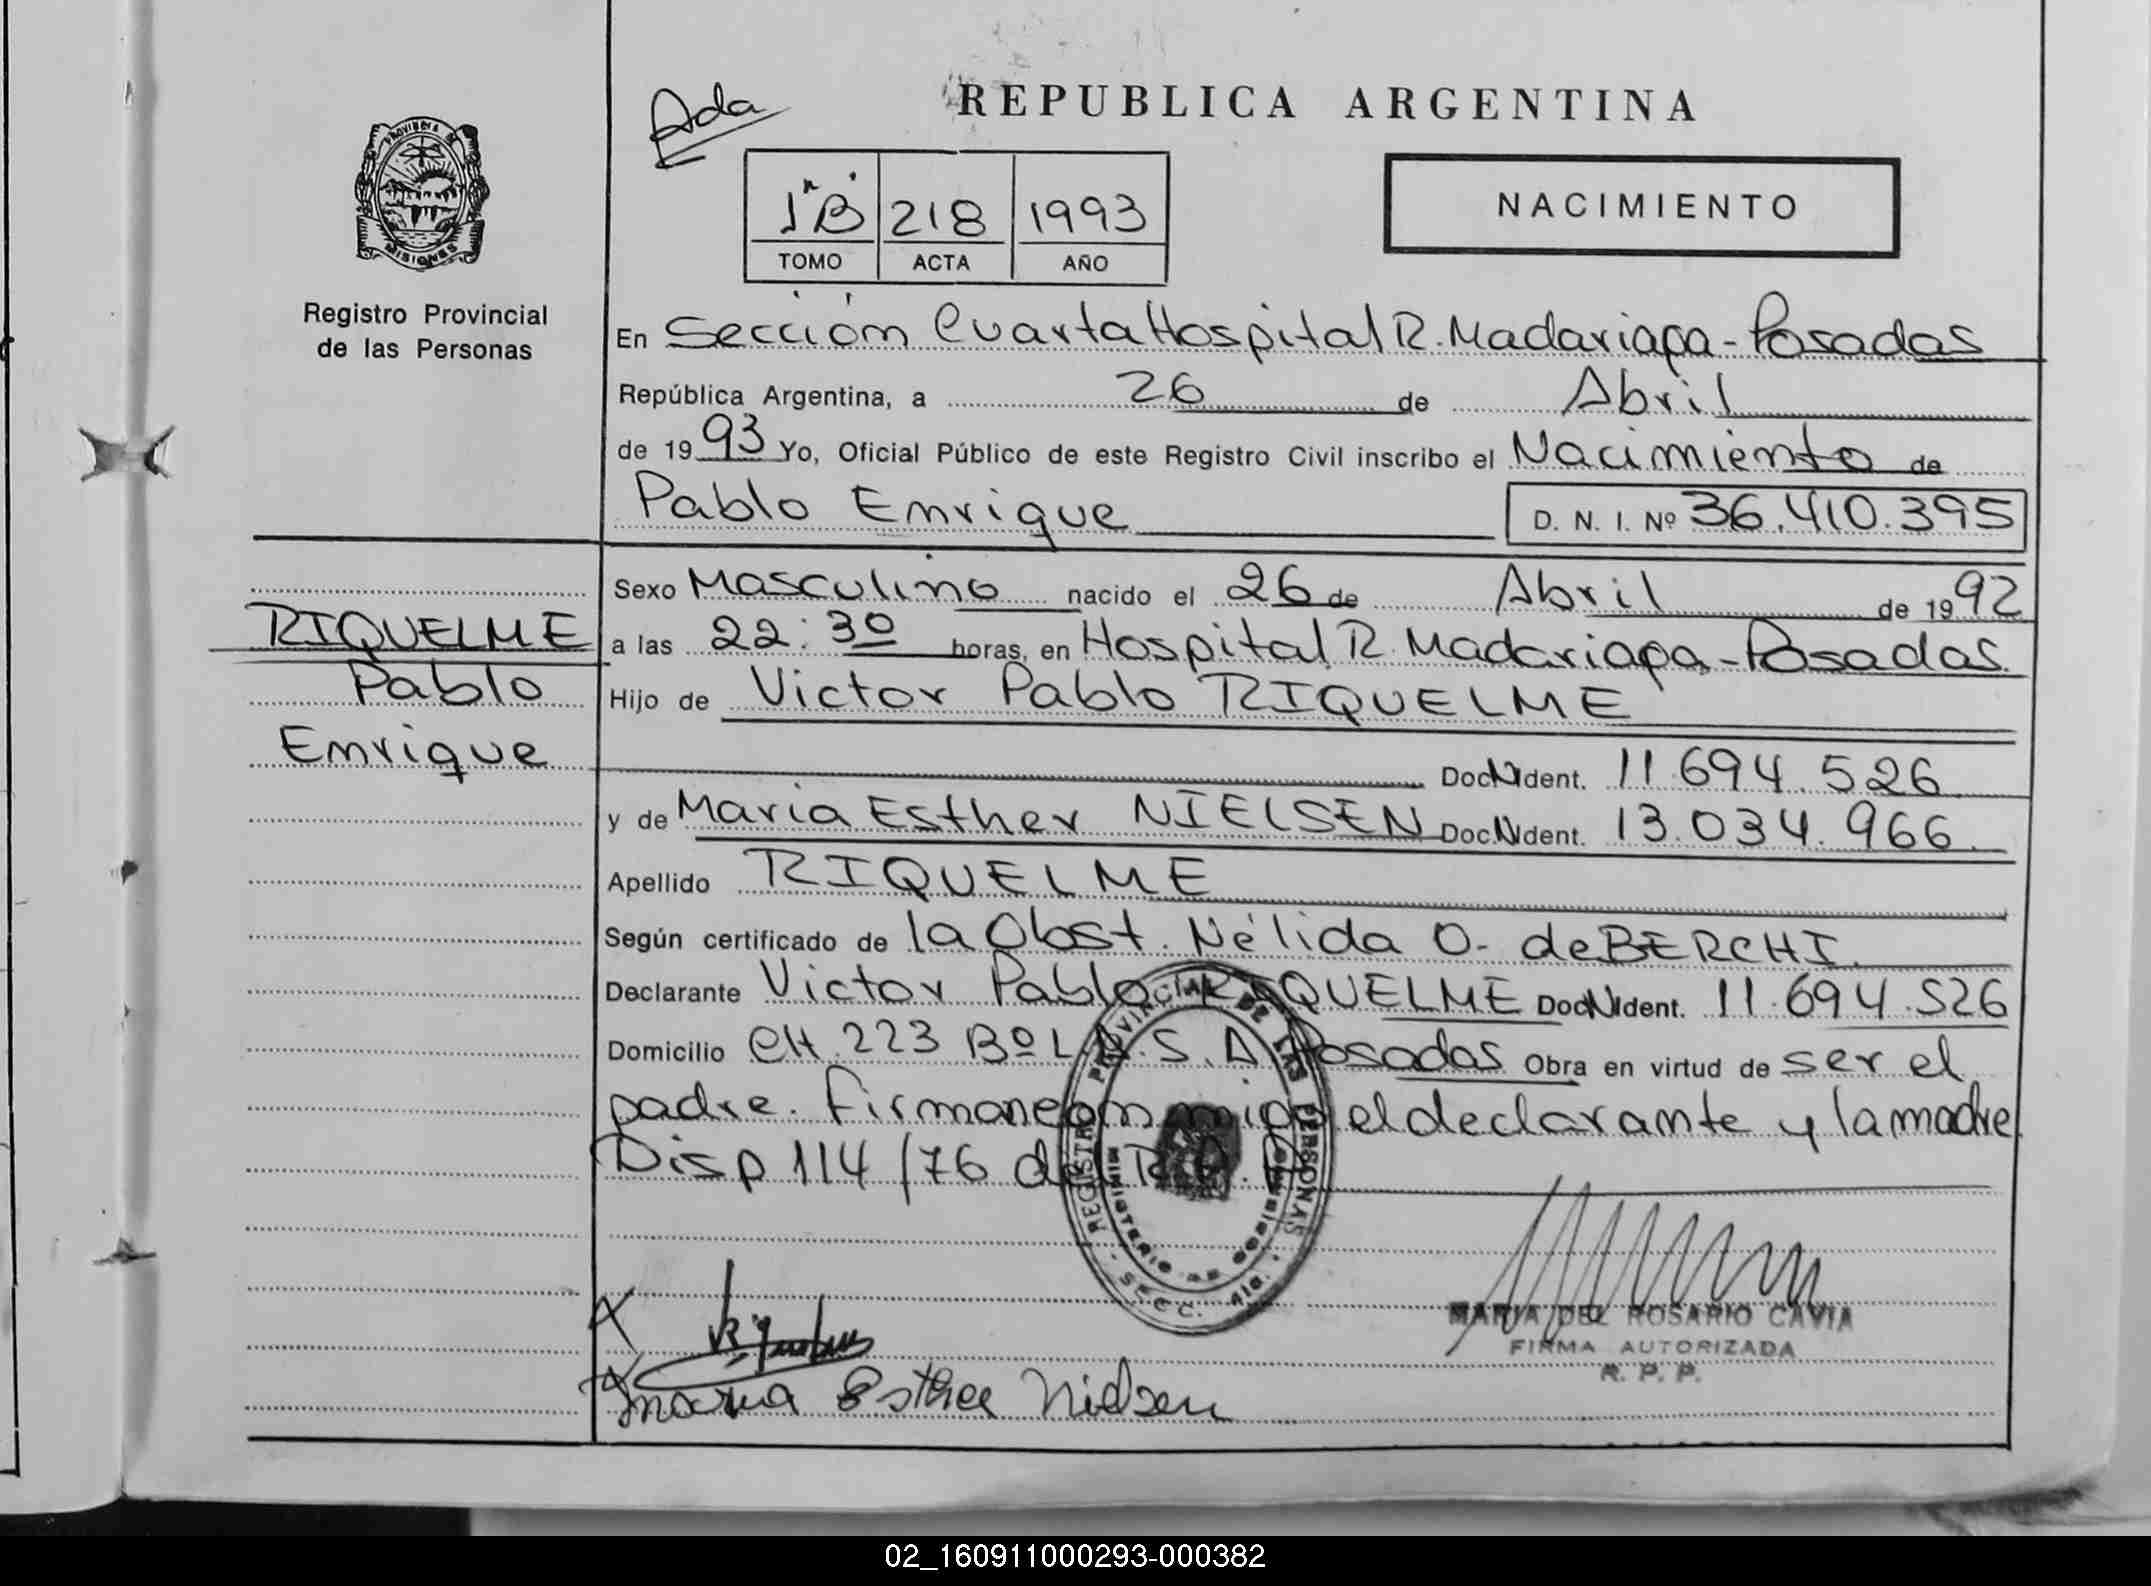 Ada
REPUBLICA ARGENTINA
PROVINCIA DE MISIONES
1"B" 218 1993
TOMO ACTA AÑO
NACIMIENTO
Registro Provincial
de las Personas
En Sección Cuarta Hospital R. Madariaga - Posadas
República Argentina, a 26 de Abril
de 1993 Yo, Oficial Público de este Registro Civil inscribo el Nacimiento de
Pablo Enrique D. N. I. Nº 36.410.395
Sexo Masculino nacido el 26 de Abril de 1992
RIQUELME
Pablo
Enrique
a las 22:30 horas, en Hospital R. Madariaga - Posadas.
Hijo de Victor Pablo RIQUELME
Doc. N. Ident. 11.694.526
y de Maria Esther NIELSEN Doc. N. Ident. 13.034.966
Apellido RIQUELME
Según certificado de la Obst. Nélida O. de BERCHI.
Declarante Victor Pablo RIQUELME Doc. N. Ident. 11.694.526
Domicilio CH. 223 Bº Posadas Obra en virtud de ser el
padre. Firman conmigo el declarante y la madre
Disp 114/76 del
REGISTRO PROVINCIAL DE LAS PERSONAS
MINISTERIO DE GOBIERNO
SECC. 4ta.
MARIA DEL ROSARIO CAVIA
FIRMA AUTORIZADA
R. P. P.
Maria Esther Nielsen
02_160911000293-000382